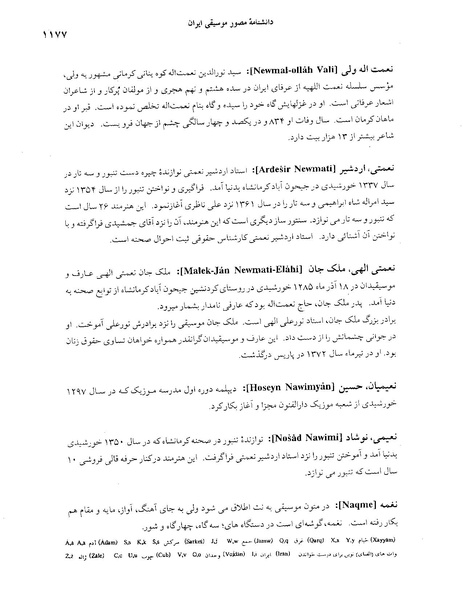 دانشنامهٔ مصور موسیقی ایران
۱۱۷۷
نعمت اله ولی [Newmal-ollâh Vali]: سید نورالدین نعمت‌اله کوه بنانی کرمانی مشهور به ولی،
مؤسس سلسله نعمت اللهیه از عرفای ایران در سده هشتم و نهم هجری و از مولفان پُرکار و از شاعران
اشعار عرفانی است. او در غزلهایش گاه خود را سیده و گاه بنام نعمت‌اله تخلص نموده است. قبر او در
ماهان کرمان است. سال وفات او ۸۳۴ و در یکصد و چهار سالگی چشم از جهان فرو بست. دیوان این
شاعر بیشتر از ۱۳ هزار بیت دارد.
نعمتی، اردشیر [Ardešir Newmati]: استاد اردشیر نعمتی نوازندهٔ چیره دست تنبور و سه تار در
سال ۱۳۳۷ خورشیدی در جیحون آباد کرمانشاه بدنیا آمد. فراگیری و نواختن تنبور را از سال ۱۳۵۴ نزد
سید امراله شاه ابراهیمی و سه تار را در سال ۱۳۶۱ نزد علی ناظری آغاز نمود. این هنرمند ۲۶ سال است
که تنبور و سه تار می نوازد. سنتور ساز دیگری است که این هنرمند، آن را نزد آقای جمشیدی فراگرفته و با
نواختن آن آشنائی دارد. استاد اردشیر نعمتی کارشناس حقوقی ثبت احوال صحنه است.
نعمتی الهی، ملک جان [Malek-Ján Newmati-Elâhi]: ملک جان نعمتی الهی عارف و
موسیقیدان در ۱۸ آذر ماه ۱۲۸۵ خورشیدی در روستای کردنشین جیحون آباد کرمانشاه از توابع صحنه به
دنیا آمد. پدر ملک جان، حاج نعمت‌اله بود که عارفی نامدار بشمار میرود.
برادر بزرگ ملک جان، استاد نورعلی الهی است. ملک جان موسیقی را نزد برادرش نورعلی آموخت. او
در جوانی چشمانش را از دست داد. این عارف و موسیقیدان گرانقدر همواره خواهان تساوی حقوق زنان
بود. او در تیرماه سال ۱۳۷۲ در پاریس درگذشت.
نعیمیان، حسین [Hoseyn Nawimyân]: دیپلمه دوره اول مدرسه موزیک که در سال ۱۲۹۷
خورشیدی از شعبه موزیک دارالفنون مجزا و آغاز بکار کرد.
نعیمی، نوشاد [Nošâd Nawimi]: نوازندهٔ تنبور در صحنه کرمانشاه که در سال ۱۳۵۰ خورشیدی
بدنیا آمد و آموختن تنبور را نزد استاد اردشیر نعمتی فراگرفت. این هنرمند در کنار حرفه قالی فروشی ۱۰
سال است که تنبور می نوازد.
نغمه [Naqme]: در متون موسیقی به نت اطلاق می شود ولی به جای آهنگ، آواز، مایه و مقام هم
بکار رفته است. نغمه، گوشه‌ای است در دستگاه های؛ سه گاه، چهارگاه و شور.